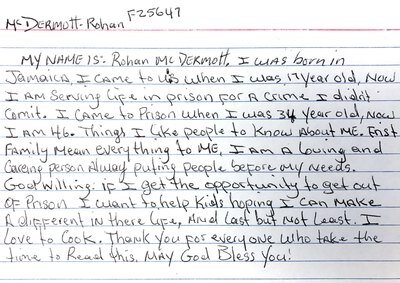 McDermott-Rohan F25647
MY NAME IS:- Rohan McDermott. I was born in
Jamaica. I came to U.S when I was 17 year old, Now
I AM Serving Life in prison for A Crime I didn't
Comit. I Came to Prison when I was 34 year old, Now
I AM 46. Things I Like people to Know About ME. First
Family Mean everything to ME, I AM A Loving and
Careing person Alway puting people before my Needs.
God Willing if I get the opportunity to get out
OF Prison I want to help Kids hoping I Can Make
A different in there Life, And Last but Not Least. I
Love to Cook. Thank you For everyone Who take the
time to Read this. MAY God Bless You!